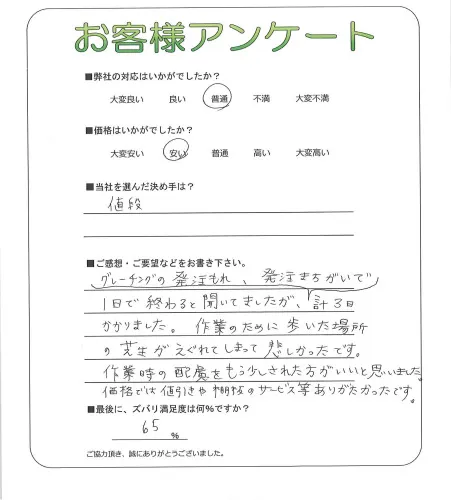 お客様アンケート
■弊社の対応はいかがでしたか？
大変良い 良い 普通 不満 大変不満
■価格はいかがでしたか？
大変安い 安い 普通 高い 大変高い
■当社を選んだ決め手は？
値段
■ご感想・ご要望などをお書き下さい。
グレーチングの発注もれ、発注まちがいで
1日で終わると聞いてましたが、計3日
かかりました。作業のために歩いた場所
の芝生がえぐれてしまって悲しかったです。
作業時の配慮をもう少しされた方がいいと思いました。
価格では値引きや棚板のサービス等ありがたかったです。
■最後に、ズバリ満足度は何%ですか？
65 %
ご協力頂き、誠にありがとうございました。